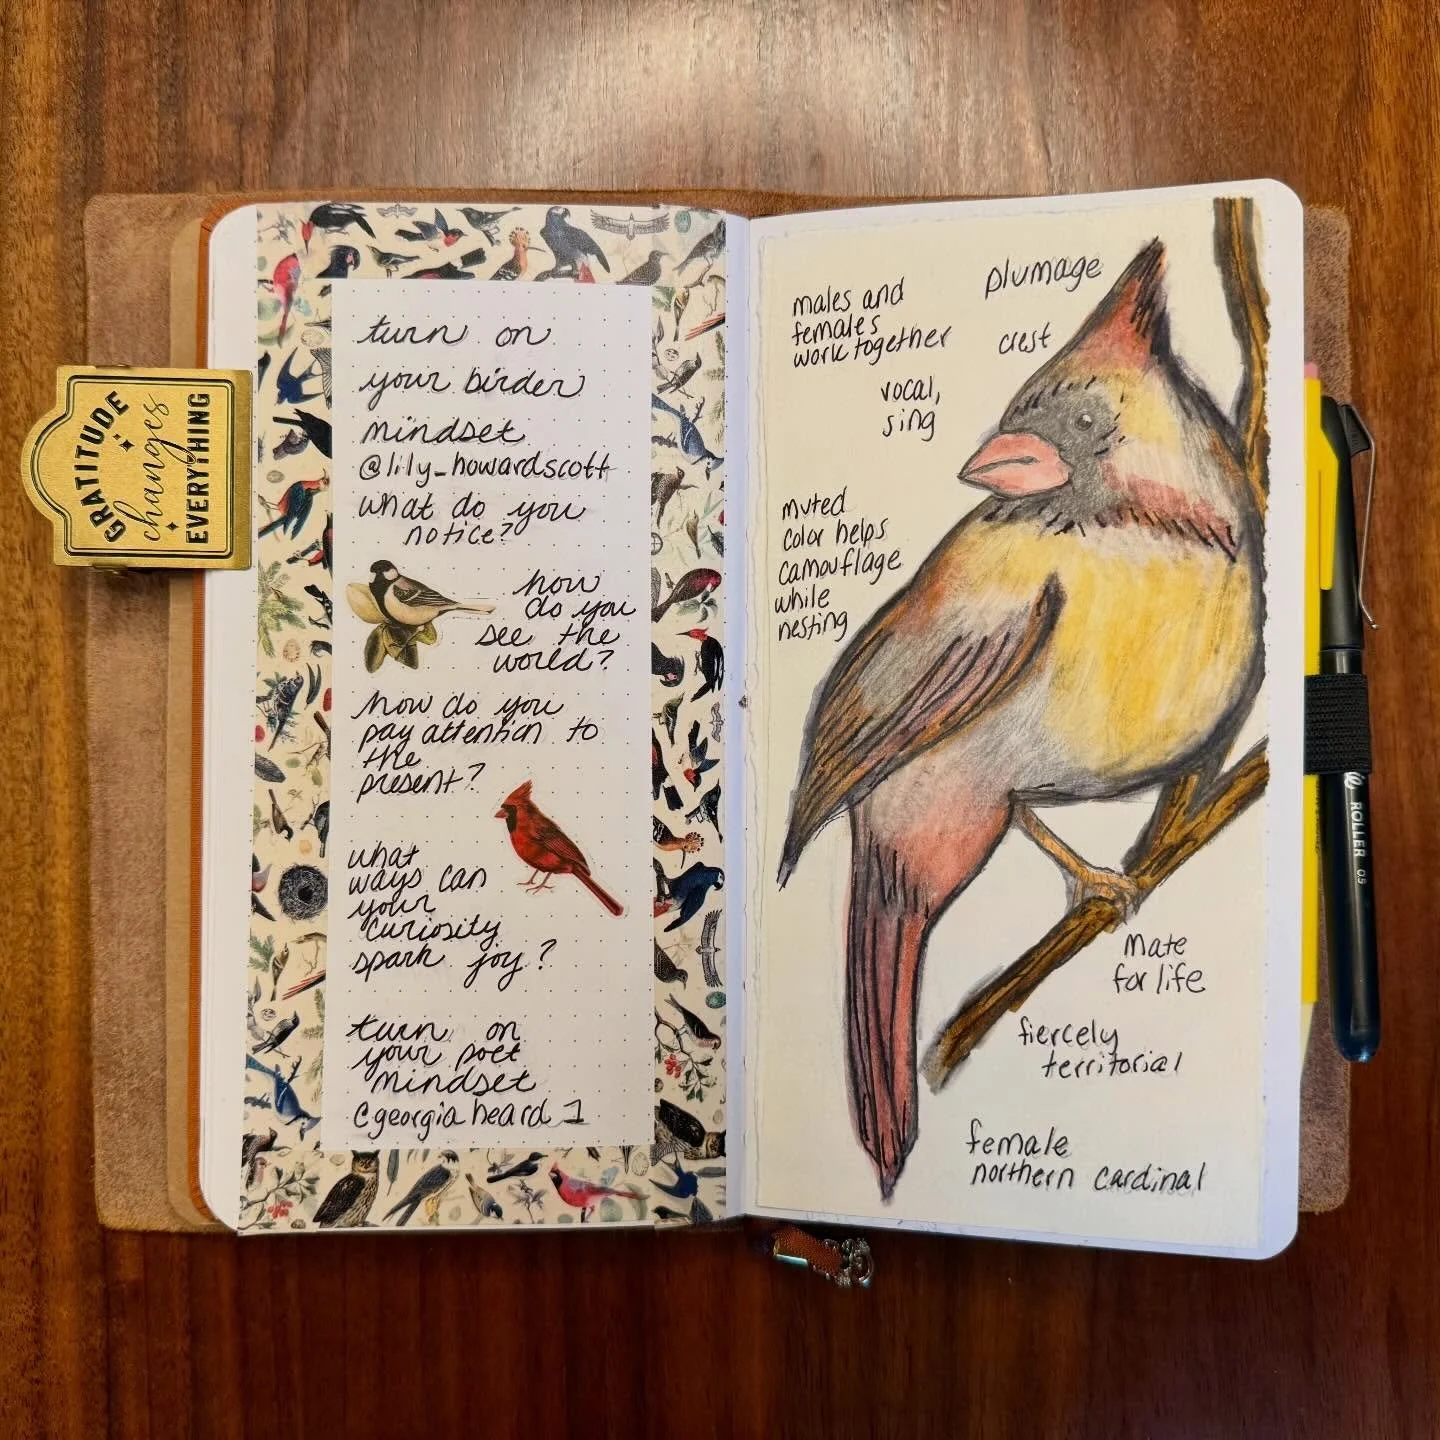 GRATITUDE
changes
EVERYTHING
turn on
your birder
mindset
@lily_howardscott
what do you
notice?
how
do you
see the
world?
how do you
pay attention to
the
present?
what
ways can
your
curiosity
spark joy?
turn on
your poet
mindset
@georgiaheard1
males and
females
work together
plumage
crest
vocal,
sing
muted
color helps
camouflage
while
nesting
mate
for life
fiercely
territorial
female
northern cardinal
ROLLER 05